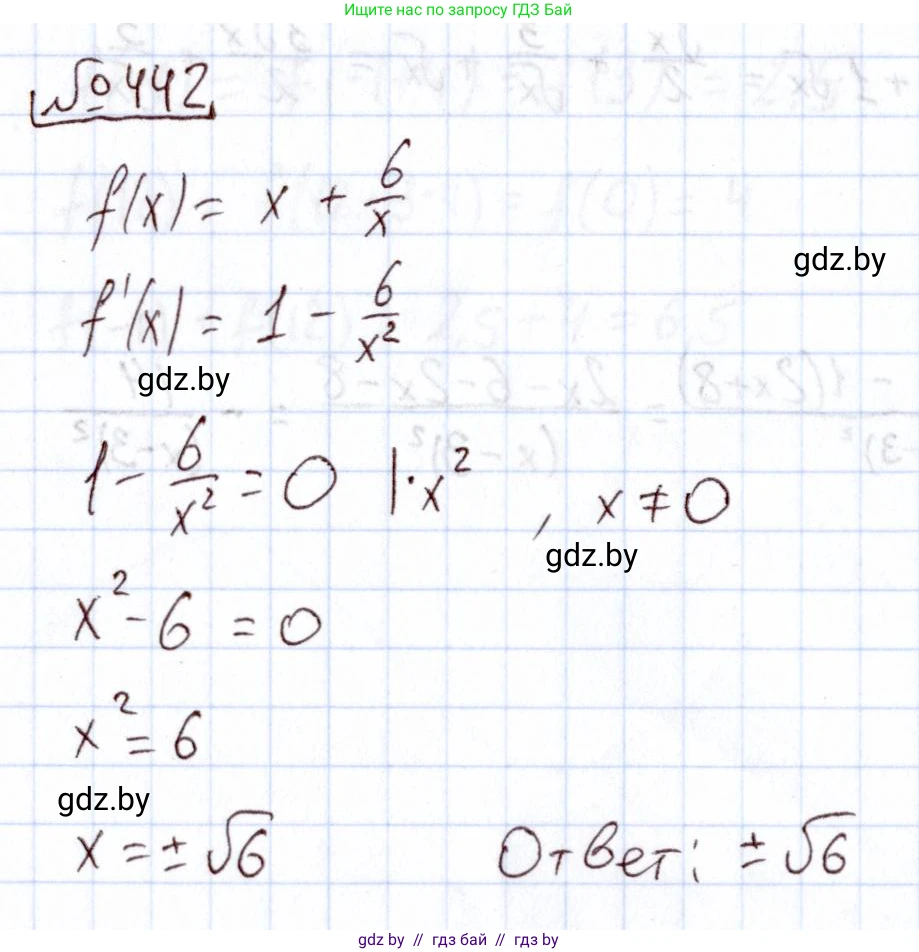 Ищите нас по запросу ГДЗ Бай
№442
f(x) = x + 6/x
gdz.by
f'(x) = 1 - 6/x²
gdz.by
1 - 6/x² = 0 |·x² , x ≠ 0
gdz.by
x² - 6 = 0
x² = 6
gdz.by
x = ± √6 Ответ: ± √6
gdz.by // гдз бай // гдз by